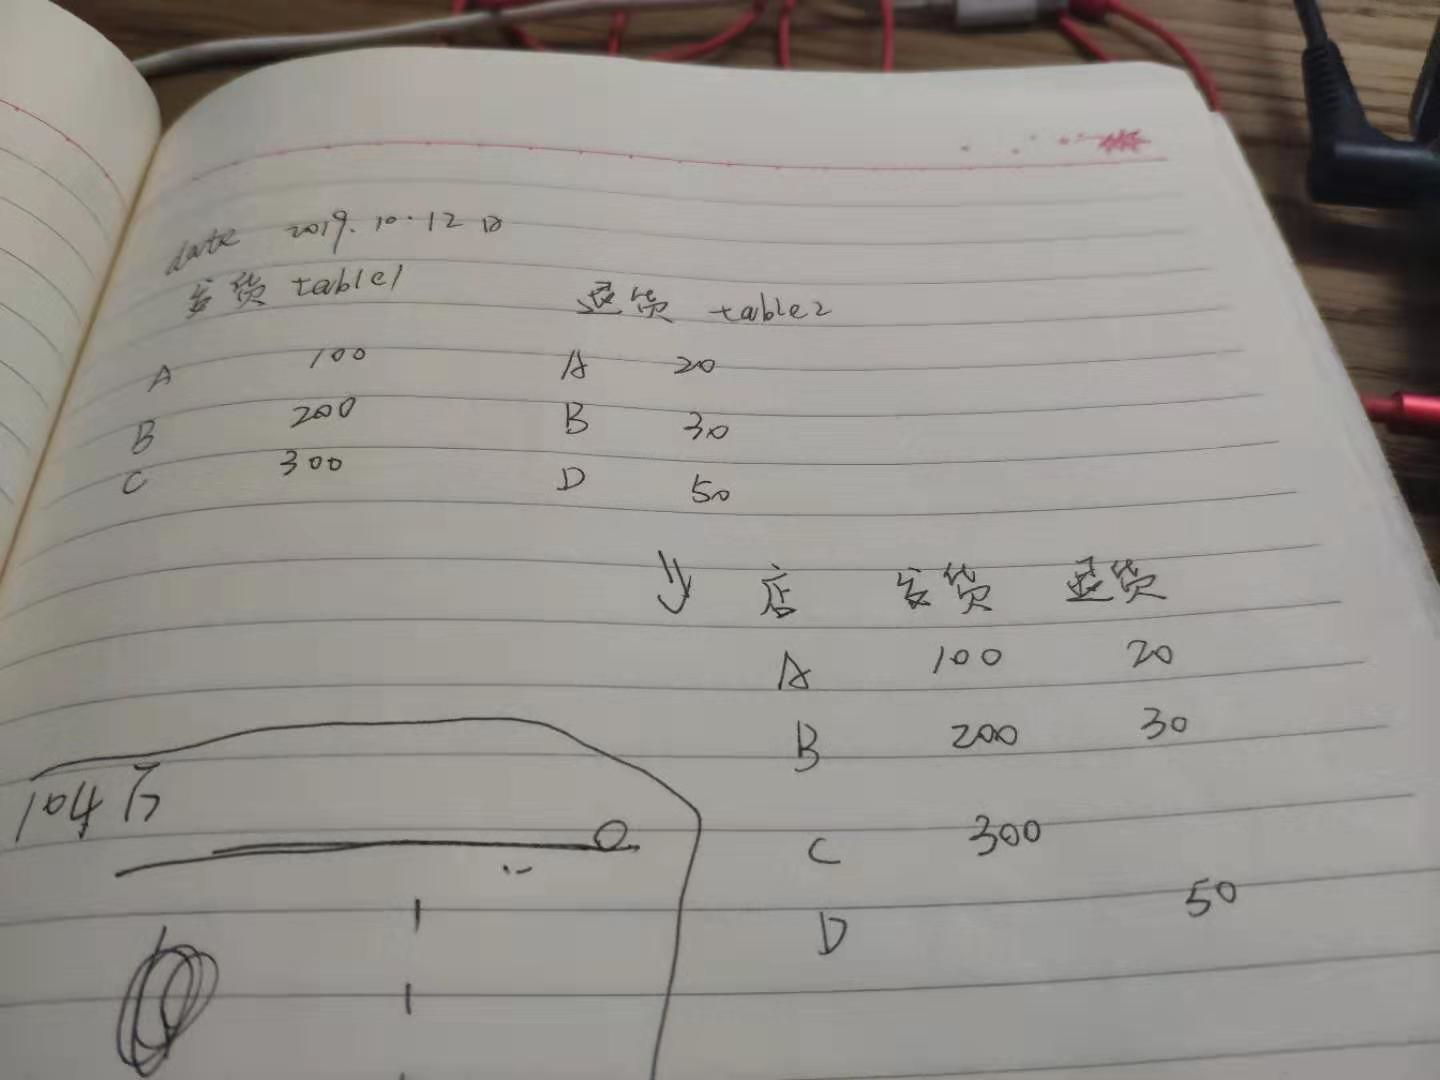 date 2019.10.12日
发货 table1 退货 table2
A 100 A 20
B 200 B 30
C 300 D 50
店 发货 退货
A 100 20
B 200 30
C 300
D 50